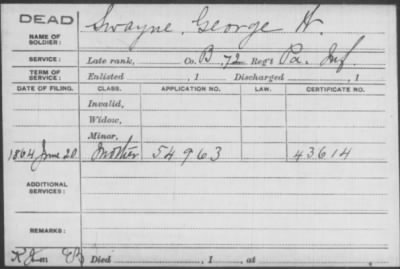 DEAD
Swayne, George H.
NAME OF SOLDIER:
SERVICE: Late rank, Co. B. 72 Reg't Pa. Inf
TERM OF SERVICE: Enlisted , 1 Discharged , 1
DATE OF FILING. CLASS. APPLICATION NO. LAW. CERTIFICATE NO.
Invalid,
Widow,
Minor,
1864 June 20 Mother 54963 43614
ADDITIONAL SERVICES:
REMARKS:
Died , 1 , at